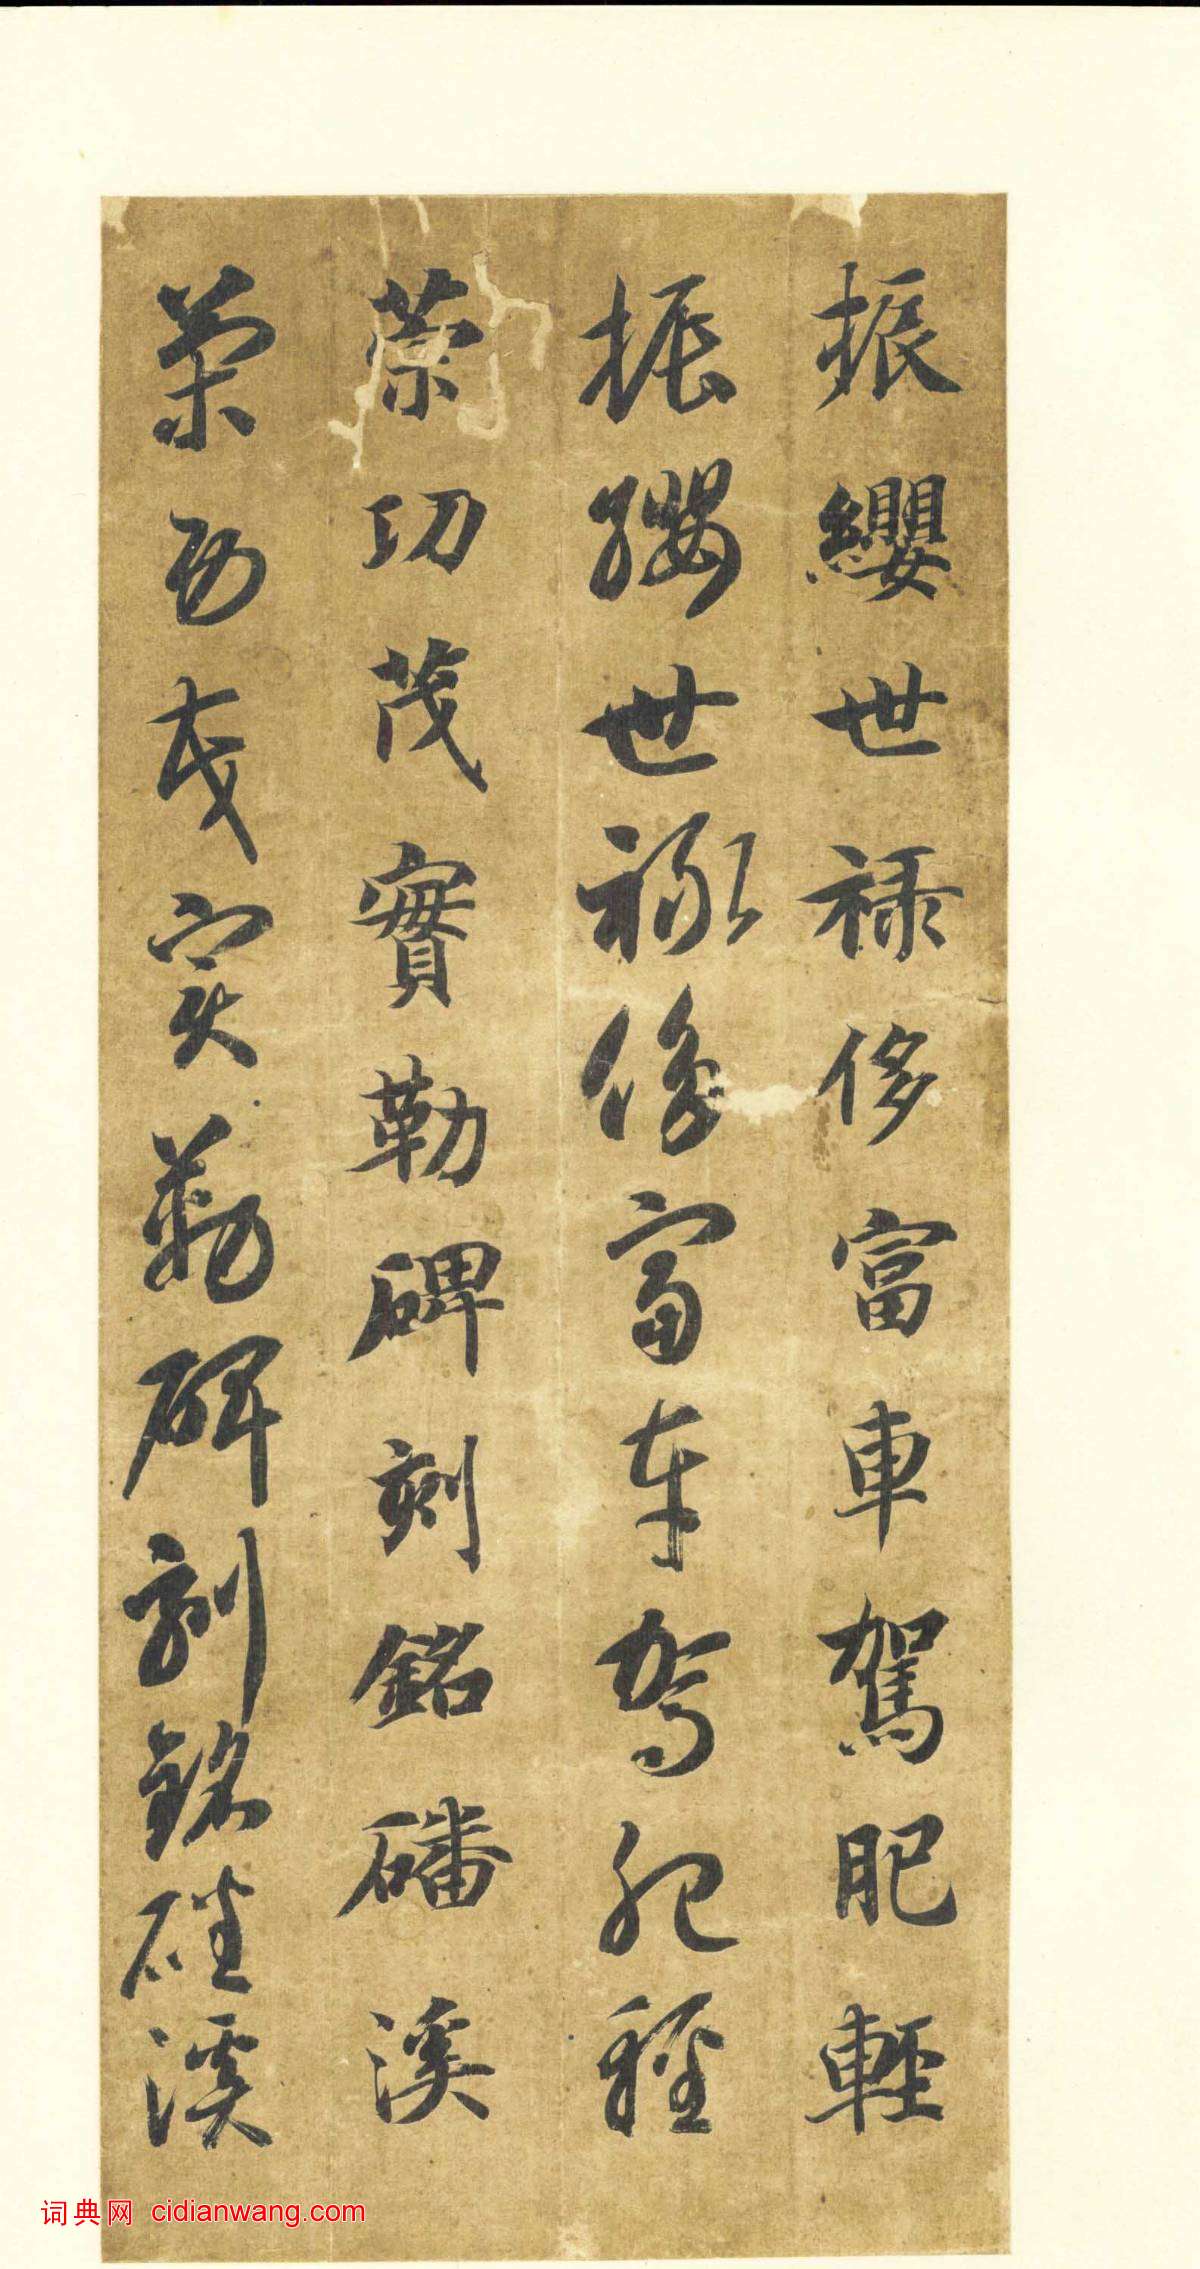 振纓世禄侈富車駕肥輕
振纓世禄侈富車駕肥輕
策功茂實勒碑刻銘磻溪
策功茂實勒碑刻銘磻溪
词典网 cidianwang.com